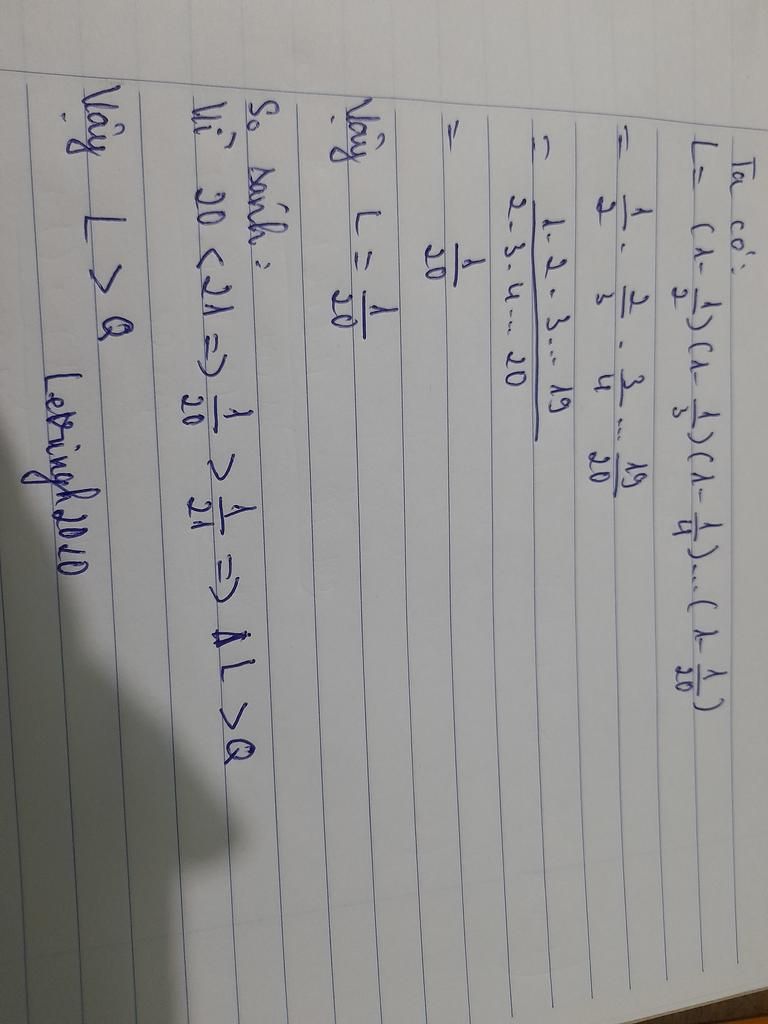 Ta có:
L = (1 - 1/2)(1 - 1/3)(1 - 1/4)...(1 - 1/20)
= 1/2 . 2/3 . 3/4 ... 19/20
= 1.2.3...19 / 2.3.4...20
= 1/20
Vậy L = 1/20
So sánh:
Vì 20 < 21 => 1/20 > 1/21 => L > Q
Vậy L > Q